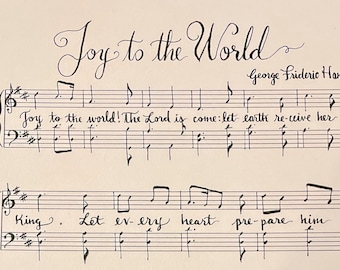 Joy to the World
George Frideric Han
Joy to the world! The Lord is come: let earth re-ceive her
King. Let ev-ery heart pre-pare him